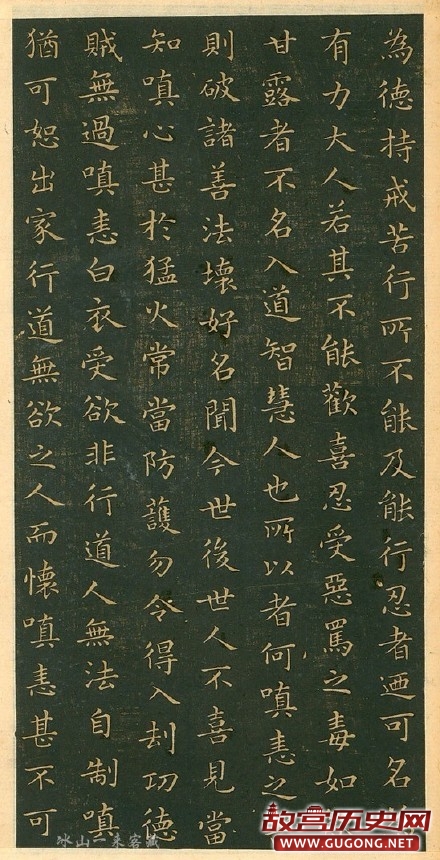 為德持戒苦行所不能及能行忍者迺可名
有力大人若其不能歡喜忍受惡罵之毒如
甘露者不名入道智慧人也所以者何瞋恚之
則破諸善法壞好名聞今世後世人不喜見當
知瞋心甚於猛火常當防護勿令得入劫功德
賊無過瞋恚白衣受欲非行道人無法自制瞋
猶可恕出家行道無欲之人而懷瞋恚甚不可
冰山一客藏
故宫历史网
WWW.GUGONG.NET